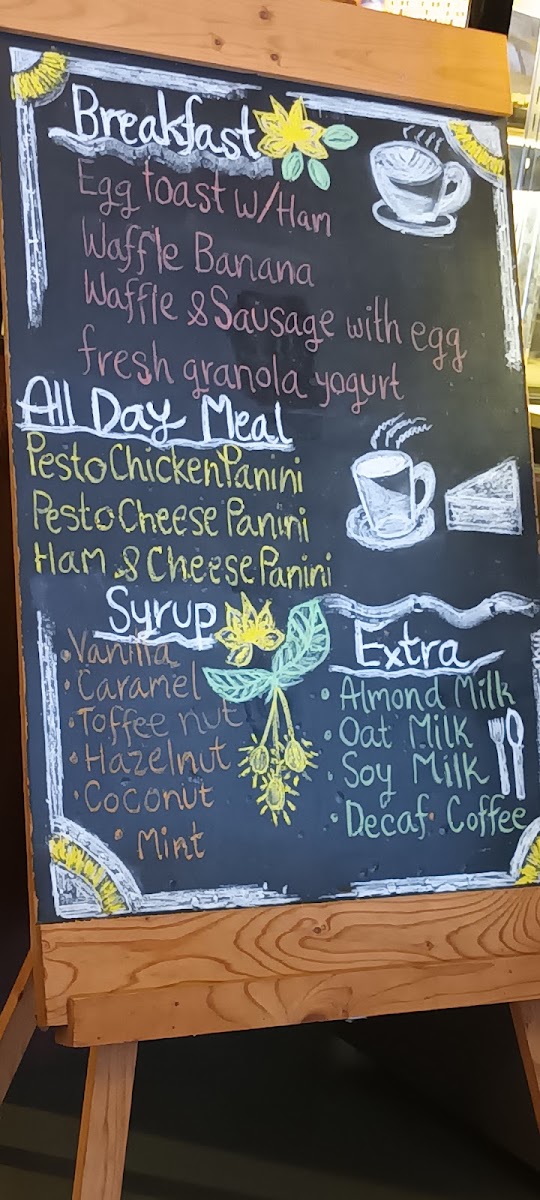 Breakfast
Egg toast w/Ham
Waffle Banana
Waffle & Sausage with egg
fresh granola yogurt
All Day Meal
Pesto Chicken Panini
Pesto Cheese Panini
Ham & Cheese Panini
Syrup
• Vanilla
• Caramel
• Toffee nut
• Hazelnut
• Coconut
• Mint
Extra
• Almond Milk
• Oat Milk
• Soy Milk
• Decaf. Coffee